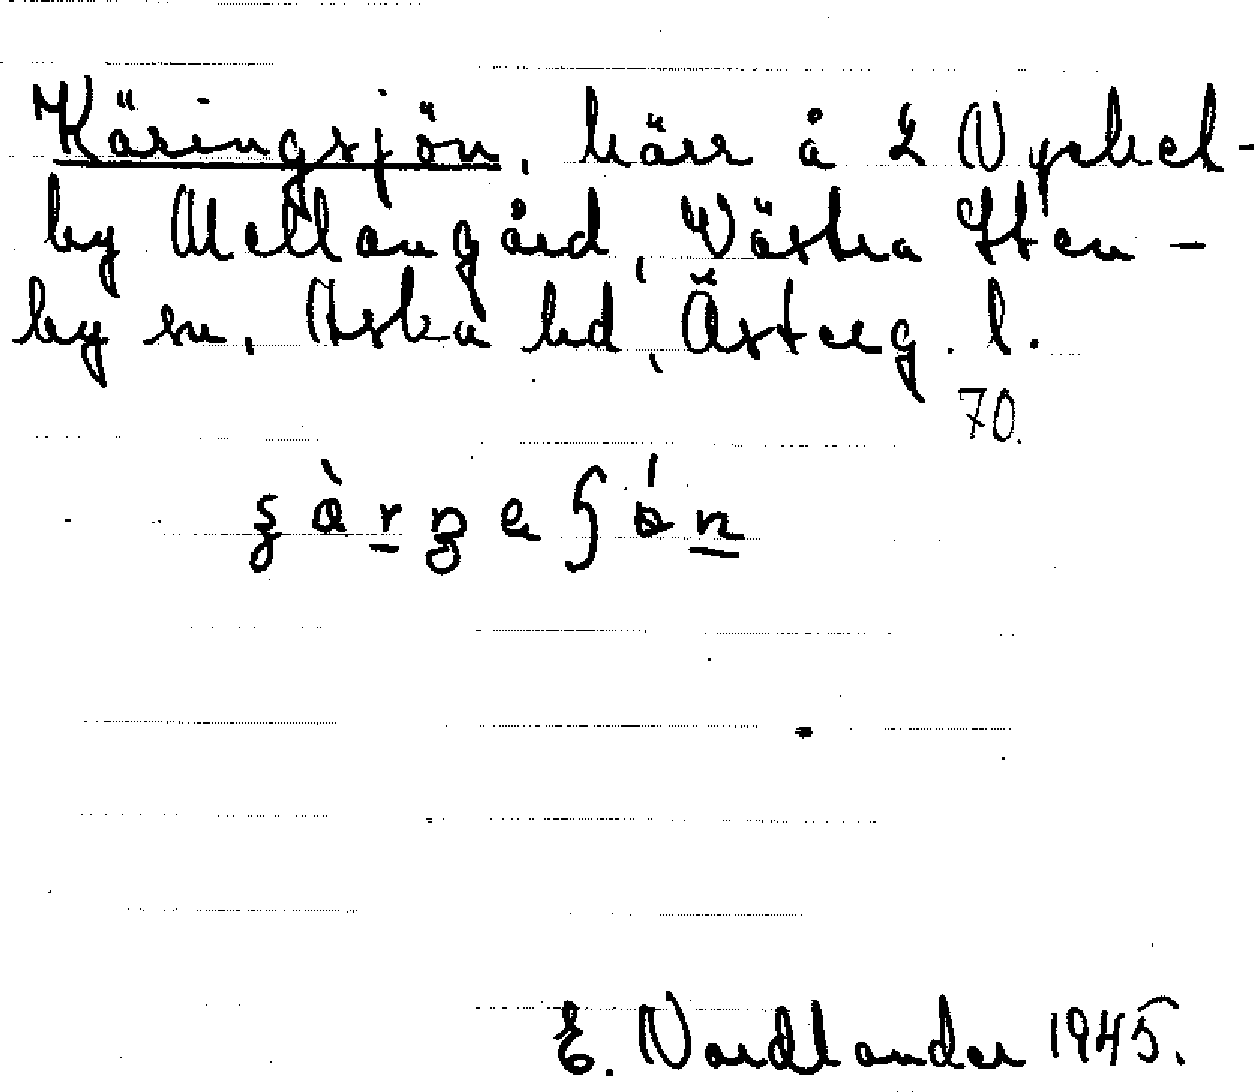 Käringsjön, kärr å L Nyckel-
by Mellangård, Västra Sten-
by sn, Aska hd, Österg. l.
70.
E. Nordlander 1945.